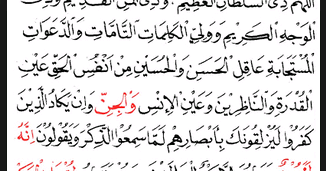 اللّٰهُمَّ ذِي السُّلْطَانِ الْعَظِيْمِ وَذِي الْمَنِّ الْقَدِيْمِ وَذِي
الْوَجْهِ الْكَرِيْمِ وَوَلِيِّ الْكَلِمَاتِ التَّامَّاتِ وَالدَّعَوَاتِ
الْمُسْتَجَابَةِ عَاقِلِ الْحَسَنِ وَالْحُسَيْنِ مِنْ اَنْفُسِ الْحَقِّ عَيْنِ
الْقُدْرَةِ وَالنَّاظِرِيْنَ وَعَيْنِ الْاِنْسِ وَالْجِنِّ وَاِنْ يَكَادُ الَّذِيْنَ
كَفَرُوْا لَيُزْلِقُوْنَكَ بِاَبْصَارِهِمْ لَمَّا سَمِعُوا الذِّكْرَ وَيَقُوْلُوْنَ اِنَّهُ